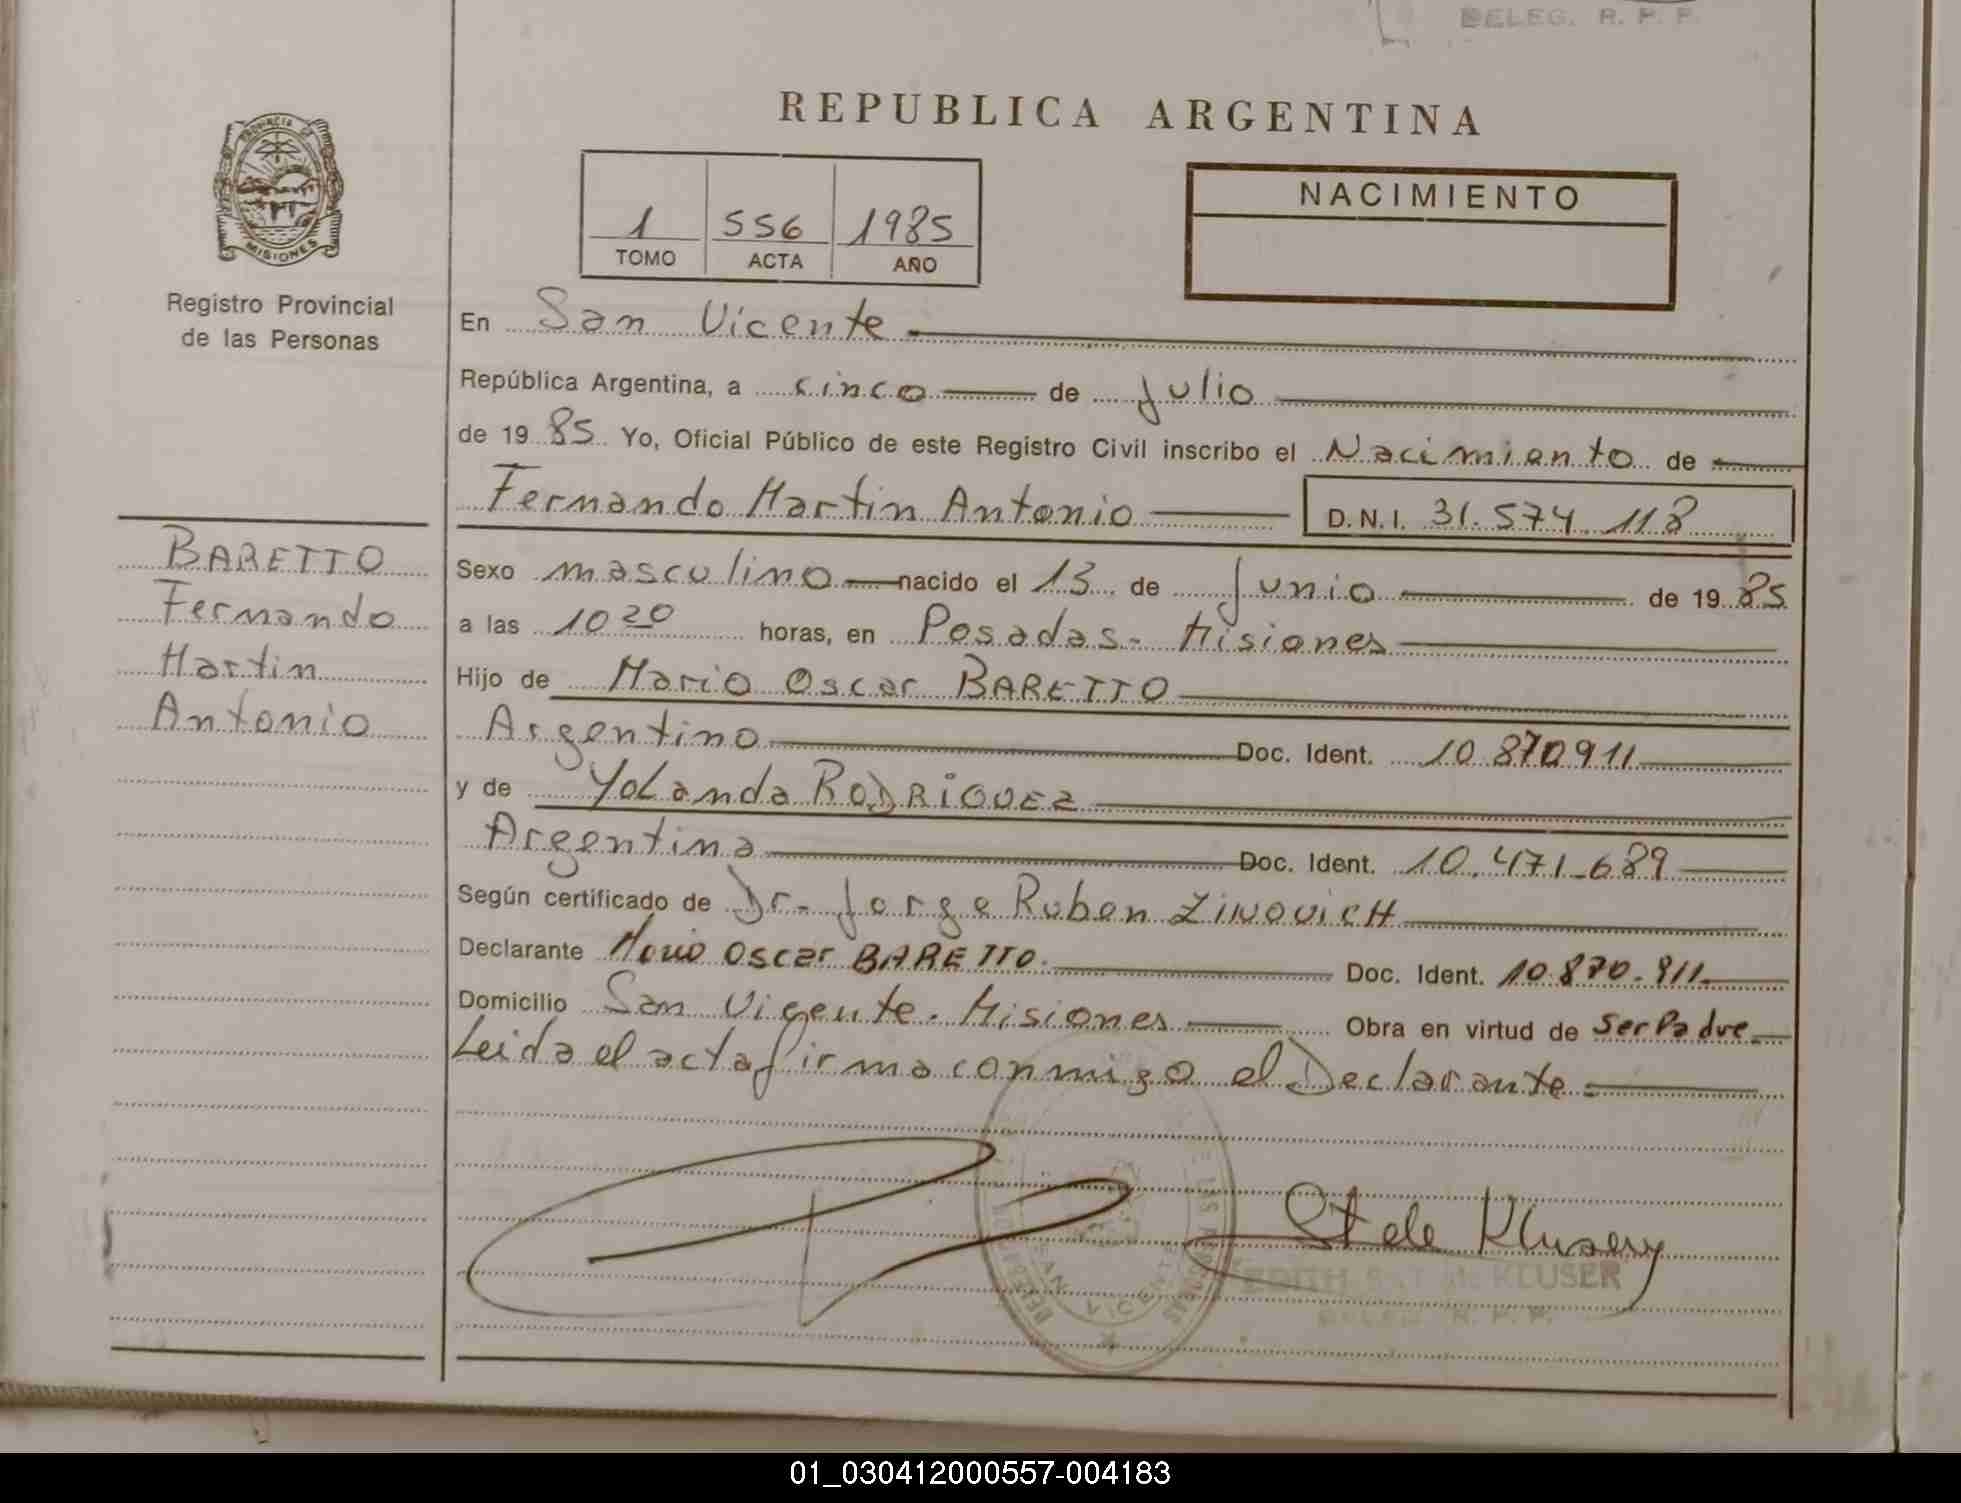 DELEG. R. P. P.
REPUBLICA ARGENTINA
PROVINCIA DE
MISIONES
Registro Provincial
de las Personas
1 556 1985
TOMO ACTA AÑO
NACIMIENTO
En San Vicente
República Argentina, a cinco de Julio
de 1985 Yo, Oficial Público de este Registro Civil inscribo el Nacimiento de
Fernando Martin Antonio D.N.I. 31.574.118
BARETTO
Fernando
Martin
Antonio
Sexo masculino nacido el 13 de Junio de 1985
a las 10 20 horas, en Posadas - Misiones
Hijo de Mario Oscar BARETTO
Argentino Doc. Ident. 10.870911
y de YoLanda RODRIGUEZ
Argentina Doc. Ident. 10.471.689
Según certificado de Dr. Jorge Ruben ZINOVICH
Declarante Mario Oscar BARETTO. Doc. Ident. 10.870.911
Domicilio San Vicente. Misiones Obra en virtud de Ser Padre
Leida el acta firma conmigo el Declarante
SAN VICENTE
KLUSER
DELEG. R. P. P.
01_030412000557-004183